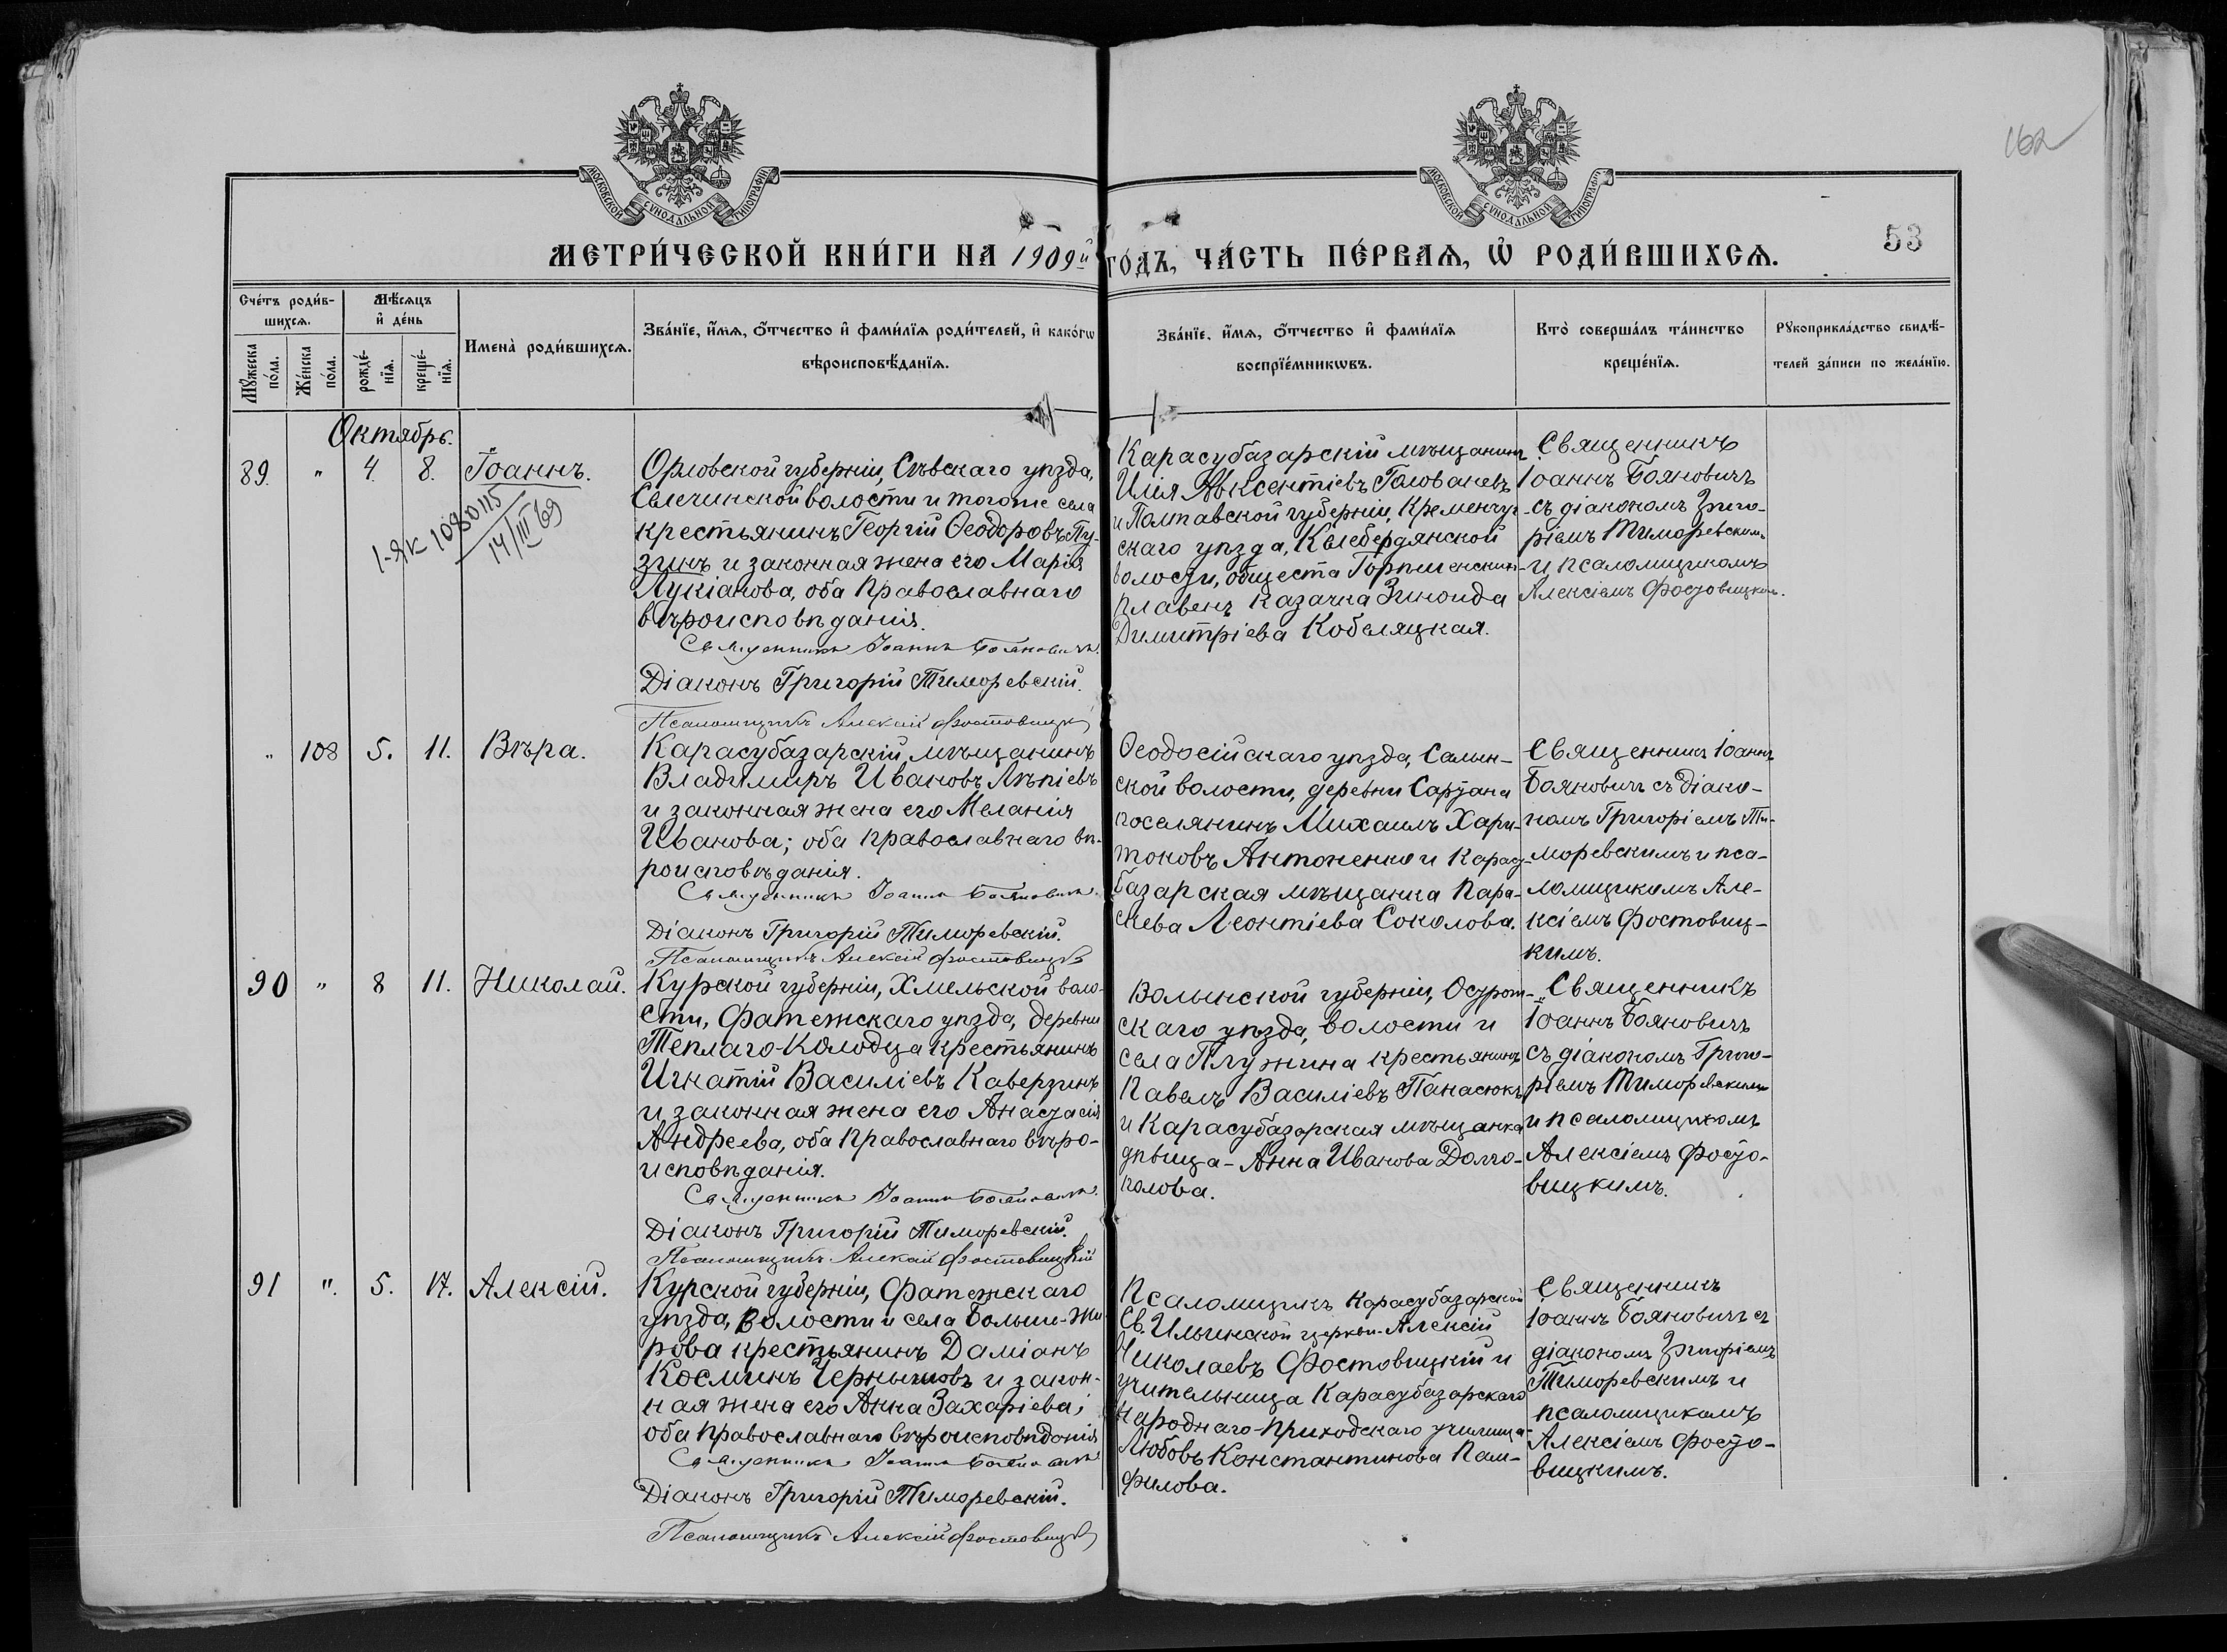 162
МОСКОВСКОЙ СѴНОДАЛЬНОЙ ТИПОГРАФІИ
МОСКОВСКОЙ СѴНОДАЛЬНОЙ ТИПОГРАФІИ
53
МЕТРИ́ЧЕСКОЙ КНИ́ГИ НА 1909й ГО́ДЪ, ЧА́СТЬ ПЕ́РВАѦ, Ѡ҆ РОДИ́ВШИХСѦ.
Сче́тъ роди́в-
шихсѧ.
Мѣ́сѧцъ
и҆ де́нь
Мꙋ́жеска
по́ла.
Же́нска
по́ла.
рожде́-
нїѧ.
креще́-
нїѧ.
Имена̀ роди́вшихсѧ.
Зва́нїе, и҆́мѧ, ѻ҆́тчество и҆ фами́лїѧ роди́телей, и҆ како́гѡ
вѣроисповѣ́данїѧ.
Зва́нїе, и҆́мѧ, ѻ҆́тчество и҆ фами́лїѧ
воспрїе́мникѡвъ.
Кто̀ соверша́лъ та́инство
креще́нїѧ.
Рꙋкоприкла́дство свидѣ́-
телей за́писи по жела́нїю.
Октябрь.
89. " 4. 8. Іоаннъ.
I-ЯК 1080115
14/III 69
Орловской губерніи, Сѣвскаго уѣзда,
Селечинской волости и тогоже села
крестьянинъ Георгій Ѳеодоровъ Пу-
зинъ и законная жена его Марія
Лукіанова, оба Православнаго
вѣроисповѣданія.
Священникъ Іоаннъ Бояновичъ.
Діаконъ Григорій Тиморевскій.
Псаломщикъ Алексій Фостовицкій
Карасубазарскій мѣщанинъ
Илія Авксентіевъ Голованевъ
и Полтавской губерніи, Кременчуг-
скаго уѣзда, Келебердянской
волости, общества
Плавенъ казачка Зиноида
Димитріева Кобеляцкая.
Священникъ
Іоаннъ Бояновичъ
съ діакономъ Григо-
ріемъ Тиморевскимъ
и псаломщикомъ
Алексіемъ Фостовицкимъ.
" 108 5. 11. Вѣра.
Карасубазарскій мѣщанинъ
Владимиръ Ивановъ Лѣпіевъ
и законная жена его Меланія
Иванова; оба православнаго вѣ-
роисповѣданія.
Священникъ Іоаннъ Бояновичъ.
Діаконъ Григорій Тиморевскій.
Псаломщикъ Алексій Фостовицкій
Ѳеодосійскаго уѣзда, Салын-
ской волости, деревни Сартана
поселянинъ Михаилъ Хари-
тоновъ Антоненко и Карасу-
базарская мѣщанка Пара-
скева Леонтіева Соколова.
Священникъ Іоаннъ
Бояновичъ съ діако-
номъ Григоріемъ Ти-
моревскимъ и пса-
ломщикомъ Але-
ксіемъ Фостовиц-
кимъ.
90 " 8 11. Николай.
Курской губерніи, Хмельской воло-
сти, Фатежскаго уѣзда, деревни
Теплаго-Колодца крестьянинъ
Игнатій Василіевъ Каверзинъ
и законная жена его Анастасія
Андреева, оба Православнаго вѣро-
исповѣданія.
Священникъ Іоаннъ Бояновичъ.
Діаконъ Григорій Тиморевскій.
Псаломщикъ Алексій Фостовицкій
Волынской губерніи, Острож-
скаго уѣзда, волости и
села Плужина крестьянинъ
Павелъ Василіевъ Панасюкъ
и Карасубазарская мѣщанка
дѣвица - Анна Иванова Долго-
полова.
Священникъ
Іоаннъ Бояновичъ
съ діакономъ Григо-
ріемъ Тиморевскимъ
и псаломщикомъ
Алексіемъ Фосто-
вицкимъ.
91 ". 5. 17. Алексій.
Курской губерніи, Фатежскаго
уѣзда, Волости и села Больше-Жи-
рова крестьянинъ Даміанъ
Косминъ Чернышовъ и закон-
ная жена его Анна Захаріева;
оба православнаго вѣроисповѣданія
Священникъ Іоаннъ Бояновичъ
Діаконъ Григорій Тиморевскій.
Псаломщикъ Алексій Фостовицкій
Псаломщикъ Карасубазарской
Св. Ильинской церкви - Алексій
Николаевъ Фостовицкій и
учительница Карасубазарскаго
Народнаго-Приходскаго училища-
Любовь Константинова Пам-
филова.
Священникъ
Іоаннъ Бояновичъ съ
діакономъ Григоріемъ
Тиморевскимъ и
псаломщикомъ
Алексіемъ Фосто-
вицкимъ.